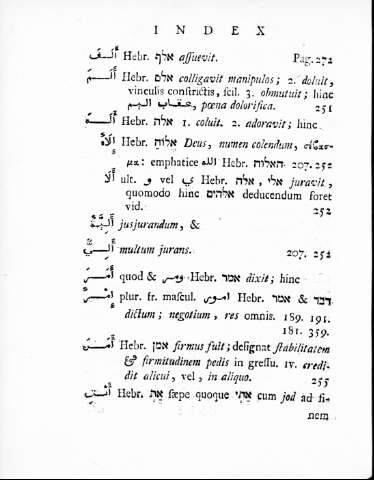 INDEX
أَلَفَ Hebr. אלף assuevit. Pag. 272
أَلَمَ Hebr. אלם colligavit manipulos; 2. doluit,
vinculis constrictis, scil. 3. obmutuit; hinc
عقاب اليم, pœna dolorifica. 251
أَلَهَ Hebr. אלה 1. coluit. 2. adoravit; hinc
إِلَاهٌ Hebr. אלוה Deus, numen colendum,
μα: emphatice الله Hebr. האלוה 207. 252
أَلَا ult. و vel ي Hebr. אלה, אלי juravit,
quomodo hinc אלהים deducendum foret
vid. 252
أَلِيَّةٌ jusjurandum, &
أَلِيٌّ multum jurans. 207. 252
أَمَرَ quod & ومر Hebr. אמר dixit; hinc
أَمْرٌ plur. fr. mascul. امور Hebr. אמר & דבר
dictum; negotium, res omnis. 189. 191.
181. 359.
أَمَنَ Hebr. אמן firmus fuit; designat stabilitatem
& firmitudinem pedis in gressu. IV. credi-
dit alicui, vel, in aliquo. 255
أَنْتِ Hebr. את sæpe quoque אתי cum jod ad fi-
nem